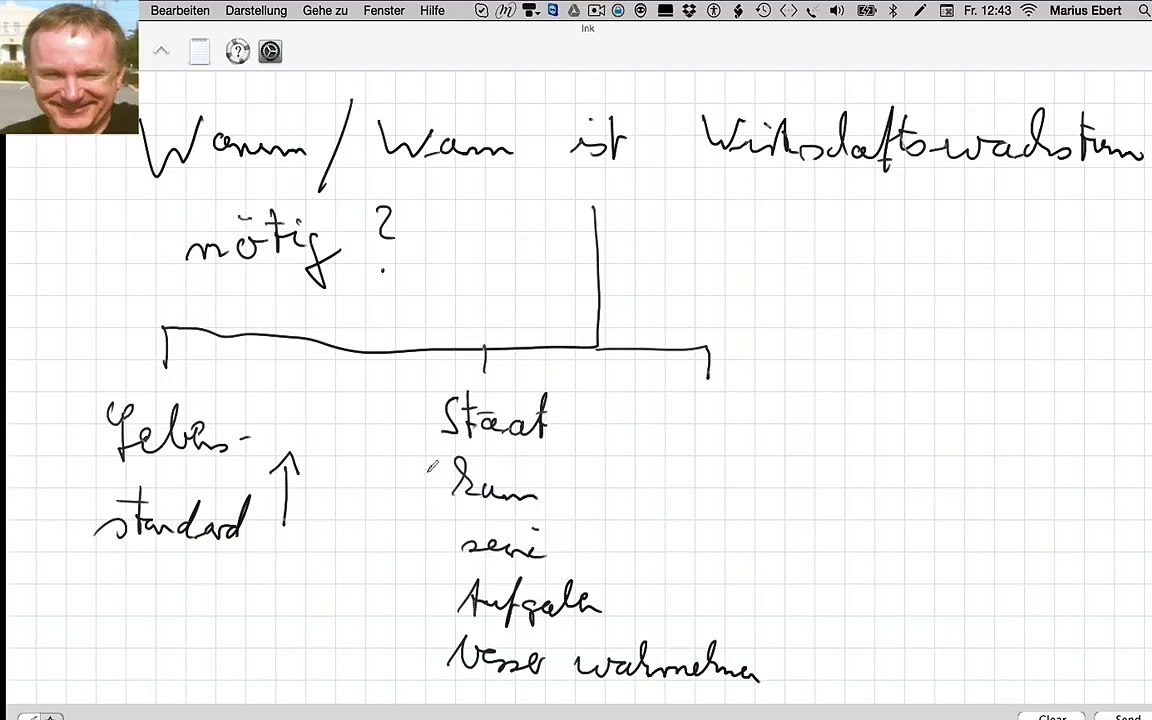 Bearbeiten Darstellung Gehe zu Fenster Hilfe Fr. 12:43 Marius Ebert
Ink
Warum / Wann ist Wirtschaftswachstum
nötig ?
Lebens-
standard
Staat
kann
seine
Aufgaben
besser wahrnehmen
Clear Send